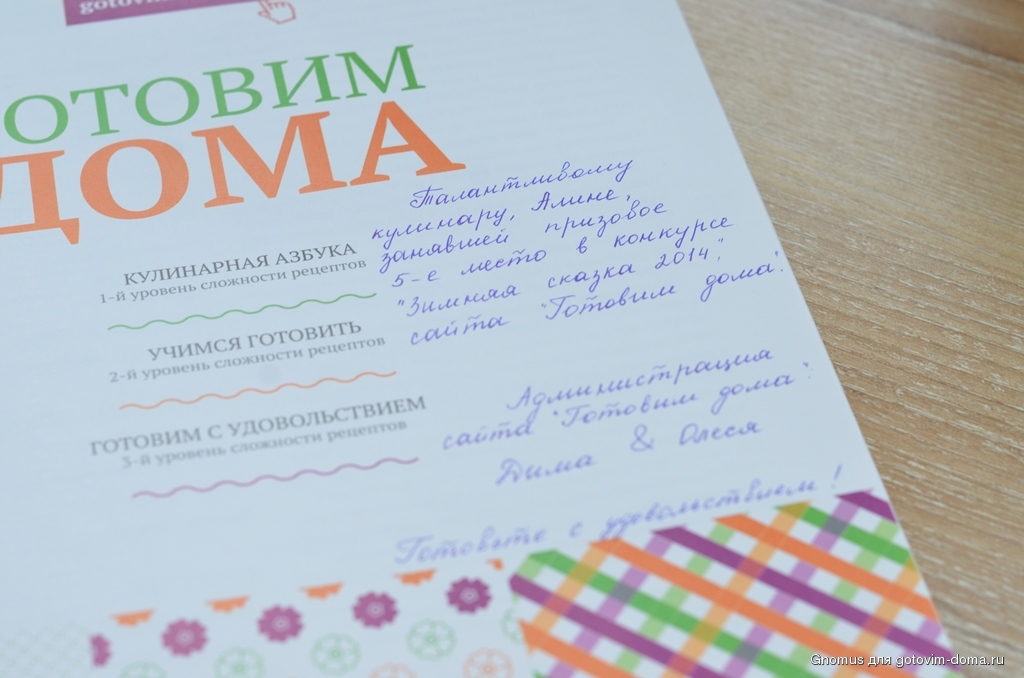 gotovim
ГОТОВИМ
ДОМА
КУЛИНАРНАЯ АЗБУКА
1-й уровень сложности рецептов
УЧИМСЯ ГОТОВИТЬ
2-й уровень сложности рецептов
ГОТОВИМ С УДОВОЛЬСТВИЕМ
3-й уровень сложности рецептов
Талантливому
кулинару, Алине,
занявшей призовое
5-е место в конкурсе
"Зимняя сказка 2014",
сайта "Готовим дома".
Администрация
сайта "Готовим дома":
Дима & Олеся
Готовьте с удовольствием!
Gnomus для gotovim-doma.ru